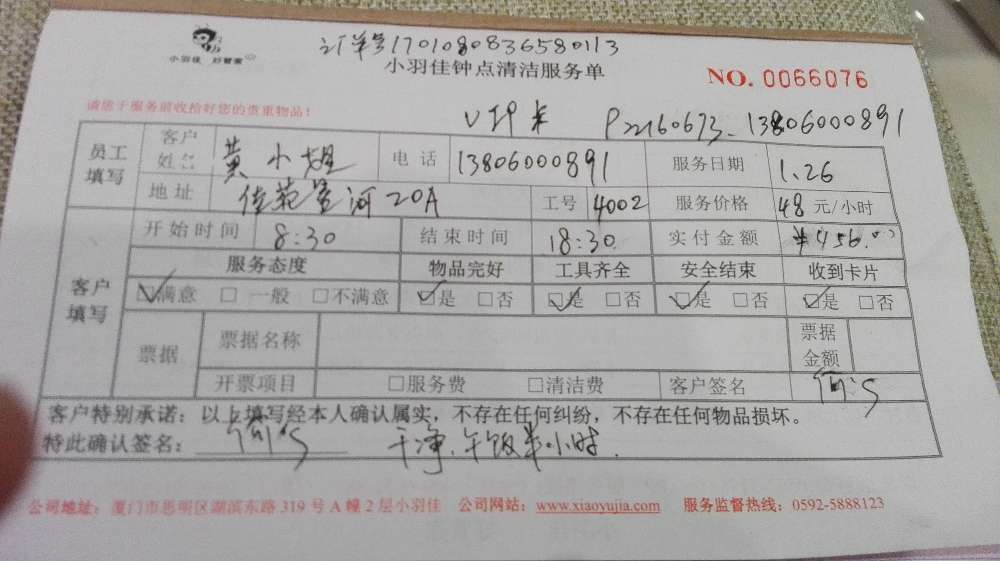 订单号1701080836580113
小羽佳 好管家
小羽佳钟点清洁服务单
NO. 0066076
请您于服务前收拾好您的贵重物品!
VIP卡 P22160673-13806000891
员工填写 客户姓名 黄小姐 电话 13806000891 服务日期 1.26
地址 佳苑星河20A 工号 4002 服务价格 48元/小时
客户填写 开始时间 8:30 结束时间 18:30 实付金额 ¥456.00
服务态度 物品完好 工具齐全 安全结束 收到卡片
☑满意 □一般 □不满意 ☑是 □否 ☑是 □否 ☑是 □否 ☑是 □否
票据 票据名称 票据金额
开票项目 □服务费 □清洁费 客户签名
客户特别承诺:以上填写经本人确认属实,不存在任何纠纷,不存在任何物品损坏。
特此确认签名: 干净、午饭半小时.
公司地址:厦门市思明区湖滨东路319号A幢2层小羽佳 公司网站:www.xiaoyujia.com 服务监督热线:0592-5888123